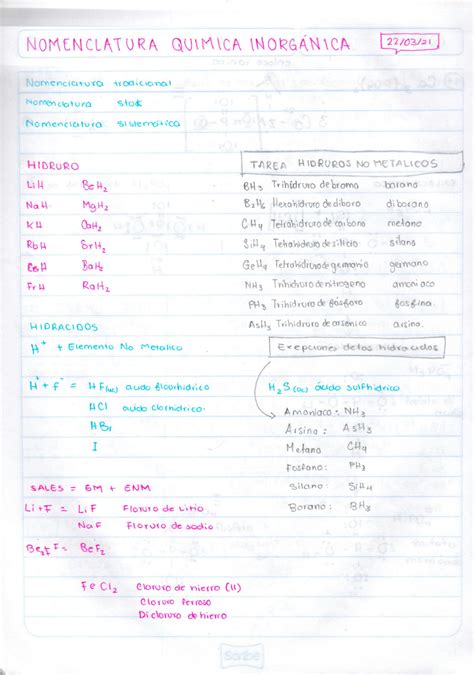 NOMENCLATURA QUIMICA INORGÁNICA
22/03/21
Nomenclatura tradicional
Nomenclatura stock
Nomenclatura sistemática
HIDRURO
LiH BeH2
NaH MgH2
KH CaH2
RbH SrH2
CsH BaH2
FrH RaH2
TAREA HIDRUROS NO METALICOS
BH3 Trihidruro de broma borano
B2H6 Hexahidruro de diboro diborano
CH4 Tetrahidruro de carbono metano
SiH4 Tetrahidruro de silicio silano
GeH4 Tetrahidruro de germanio germano
NH3 Trihidruro de nitrogeno amoniaco
PH3 Trihidruro de fósforo fosfina.
AsH3 Trihidruro de arsénico arsina.
HIDRACIDOS
H+ + Elemento No Metalico
H+ + F- = HF(ac) acido fluorhidrico
HCl acido clorhidrico
HBr
I
Exepciones de los hidracidos
H2S(ac) ácido sulfhidrico
Amoniaco: NH3
Arsina: AsH3
Metano CH4
Fosfano: PH3
Silano: SiH4
Borano: BH3
SALES = EM + ENM
Li+F = LiF Floruro de Litio
NaF Floruro de sodio
= BeF2
FeCl2 Cloruro de hierro (II)
Cloruro Ferroso
Dicloruro de hierro
Scribe